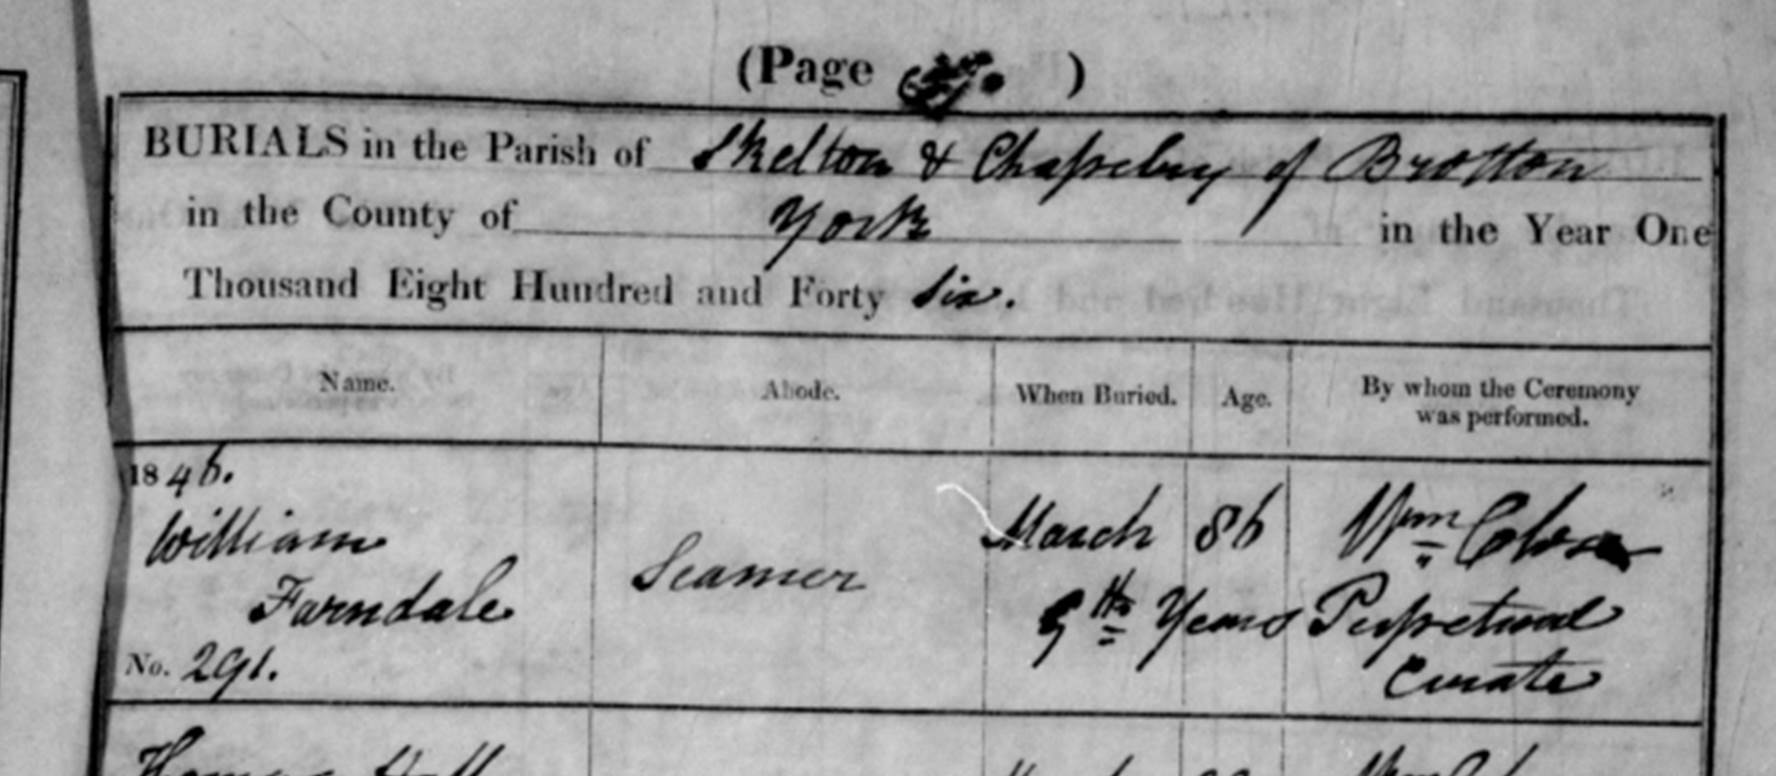 (Page )
BURIALS in the Parish of Skelton & Chapelry of Brotton
in the County of York in the Year One
Thousand Eight Hundred and Forty Six.
Name. Abode. When Buried. Age. By whom the Ceremony
was performed.
1846.
William Seamer March 86 Wm Close
Farndale 9th Years Perpetual
No. 291. Curate
Thomas